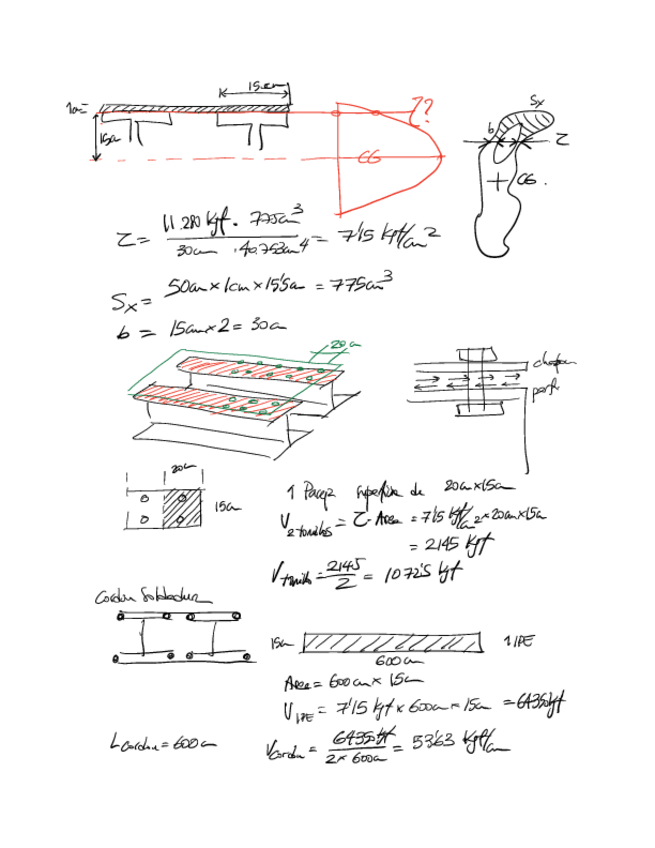 15cm
1cm=
15cm
Z??
CG
Sx
b
Z
CG.
Z = 11.280 kgf · 775cm³ / 30cm · 40.753cm⁴ = 7'15 kgf/cm²
Sx = 50cm x 1cm x 15'5cm = 775cm³
b = 15cm x 2 = 30cm
20cm
chapa
perfil
20cm
15cm
1 Paquz superficie de 20cm x 15cm
V2 tornillos = Z · Area = 7'15 kgf/cm² x 20cm x 15cm
= 2145 kgf
Vtornillo = 2145 / 2 = 1072'5 kgf
Cordon Soldadura
15cm
600cm
1 IPE
Area = 600cm x 15cm
V IPE = 7'15 kgf x 600cm x 15cm = 64350kgf
L cordon = 600cm
Vcordon = 64350kgf / 2 x 600cm = 53'63 kgf/cm